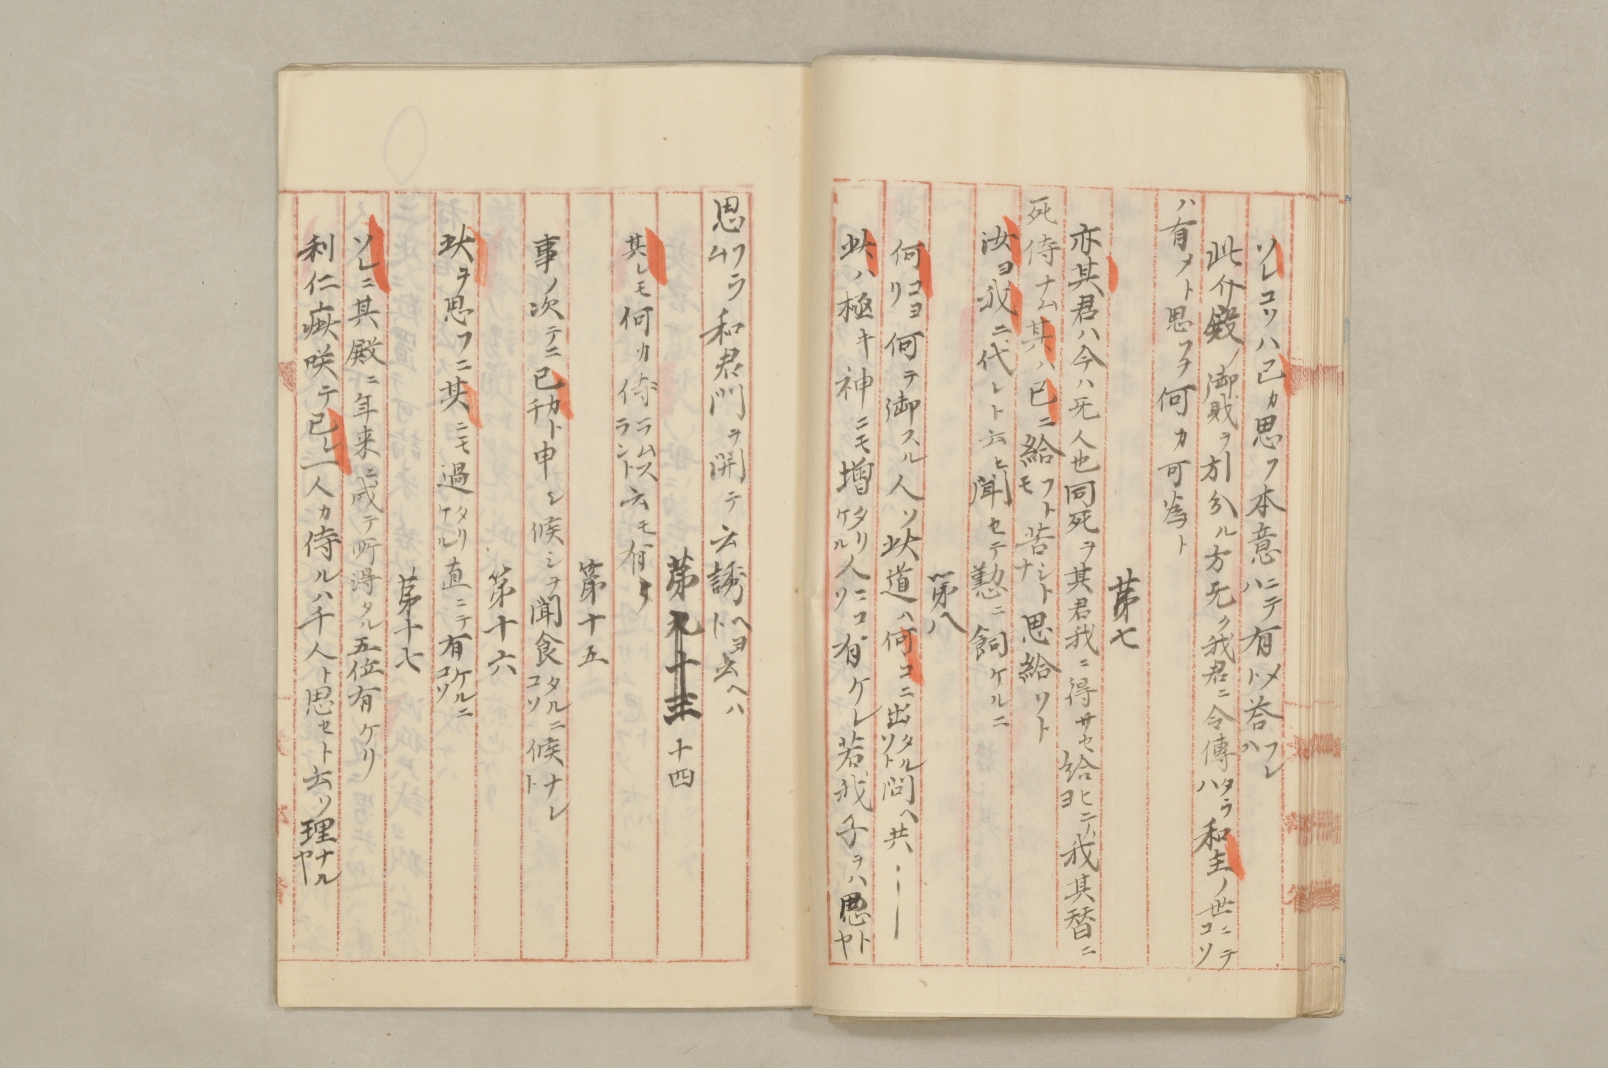 ソレコソハ己カ思フ本意ニテハ有メトハ答フレハ
此介殿ノ御財ヲ引分ル方无ク我君ニ令傳ハタラ和主ノ世ニテコソ
ハ有メト思フヲ何カ可為ト
苐七
亦其君ハ今ハ死人也同死ヲ其君我ニ得サセ給ヒヨニ我其替ニ
死侍ナム其ハ己ニ給フトモ苦ナシト思給リト
汝ヨ我ニ代レト云ヒ聞セテ懃ニ飼ケルニ
苐八
何コヨリ何テ御スル人ソ此道ハ何コニ出タルソト問ヘ共
此ハ極キ神ニモ増タリケル人ニコソ有ケレ若我子ヲハ思ヤト
思ムフラ和君門ヲ開テ云誘ヘヨト云ヘハ
苐十四
其レモ何カ侍ラムスラント云モ有
苐十五
事ノ次テニ己カ千ト申シ候シヲ聞食タルニコソ候ナレト
苐十六
此ヲ思フニ其ニモ過タリケル直ニテ有ケルニコソ
苐十七
ソレニ其殿ニ年来ニ成テ所得タル五位有ケリ
利仁痴咲テ己レ一人カ侍ルハ千人ト思セト云ソ理ナルヤ